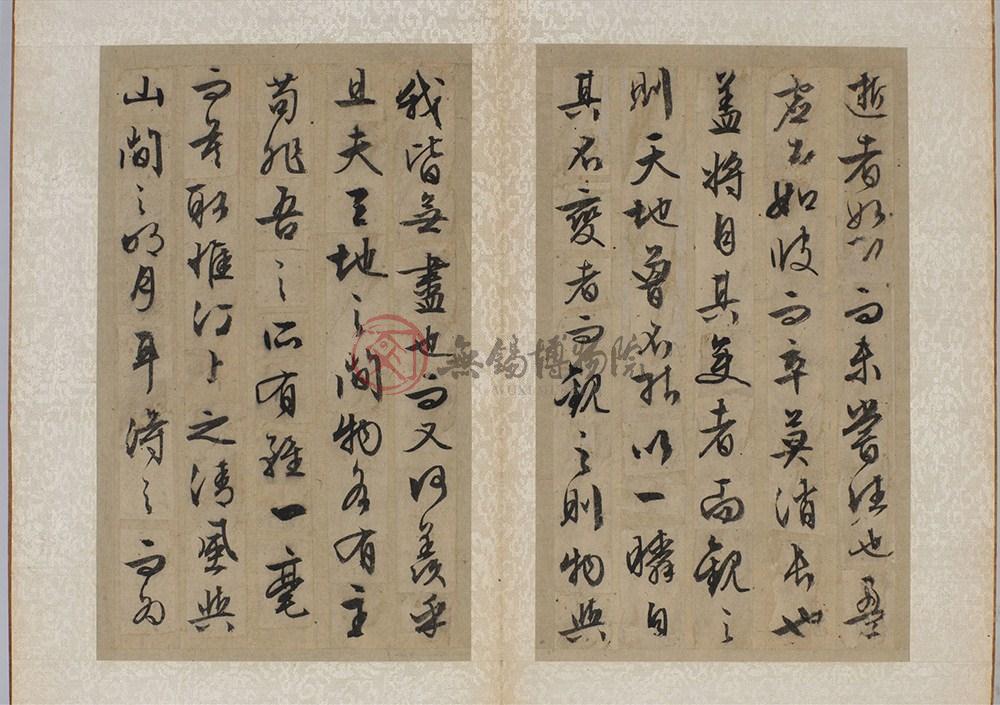 逝者如斯而未嘗往也盈
虛者如彼而卒莫消長也
蓋將自其變者而觀之
則天地曾不能以一瞬自
其不變者而觀之則物與
我皆無盡也而又何羨乎
且夫天地之間物各有主
苟非吾之所有雖一毫
而莫取惟江上之清風與
山間之明月耳得之而為
無錫博物院